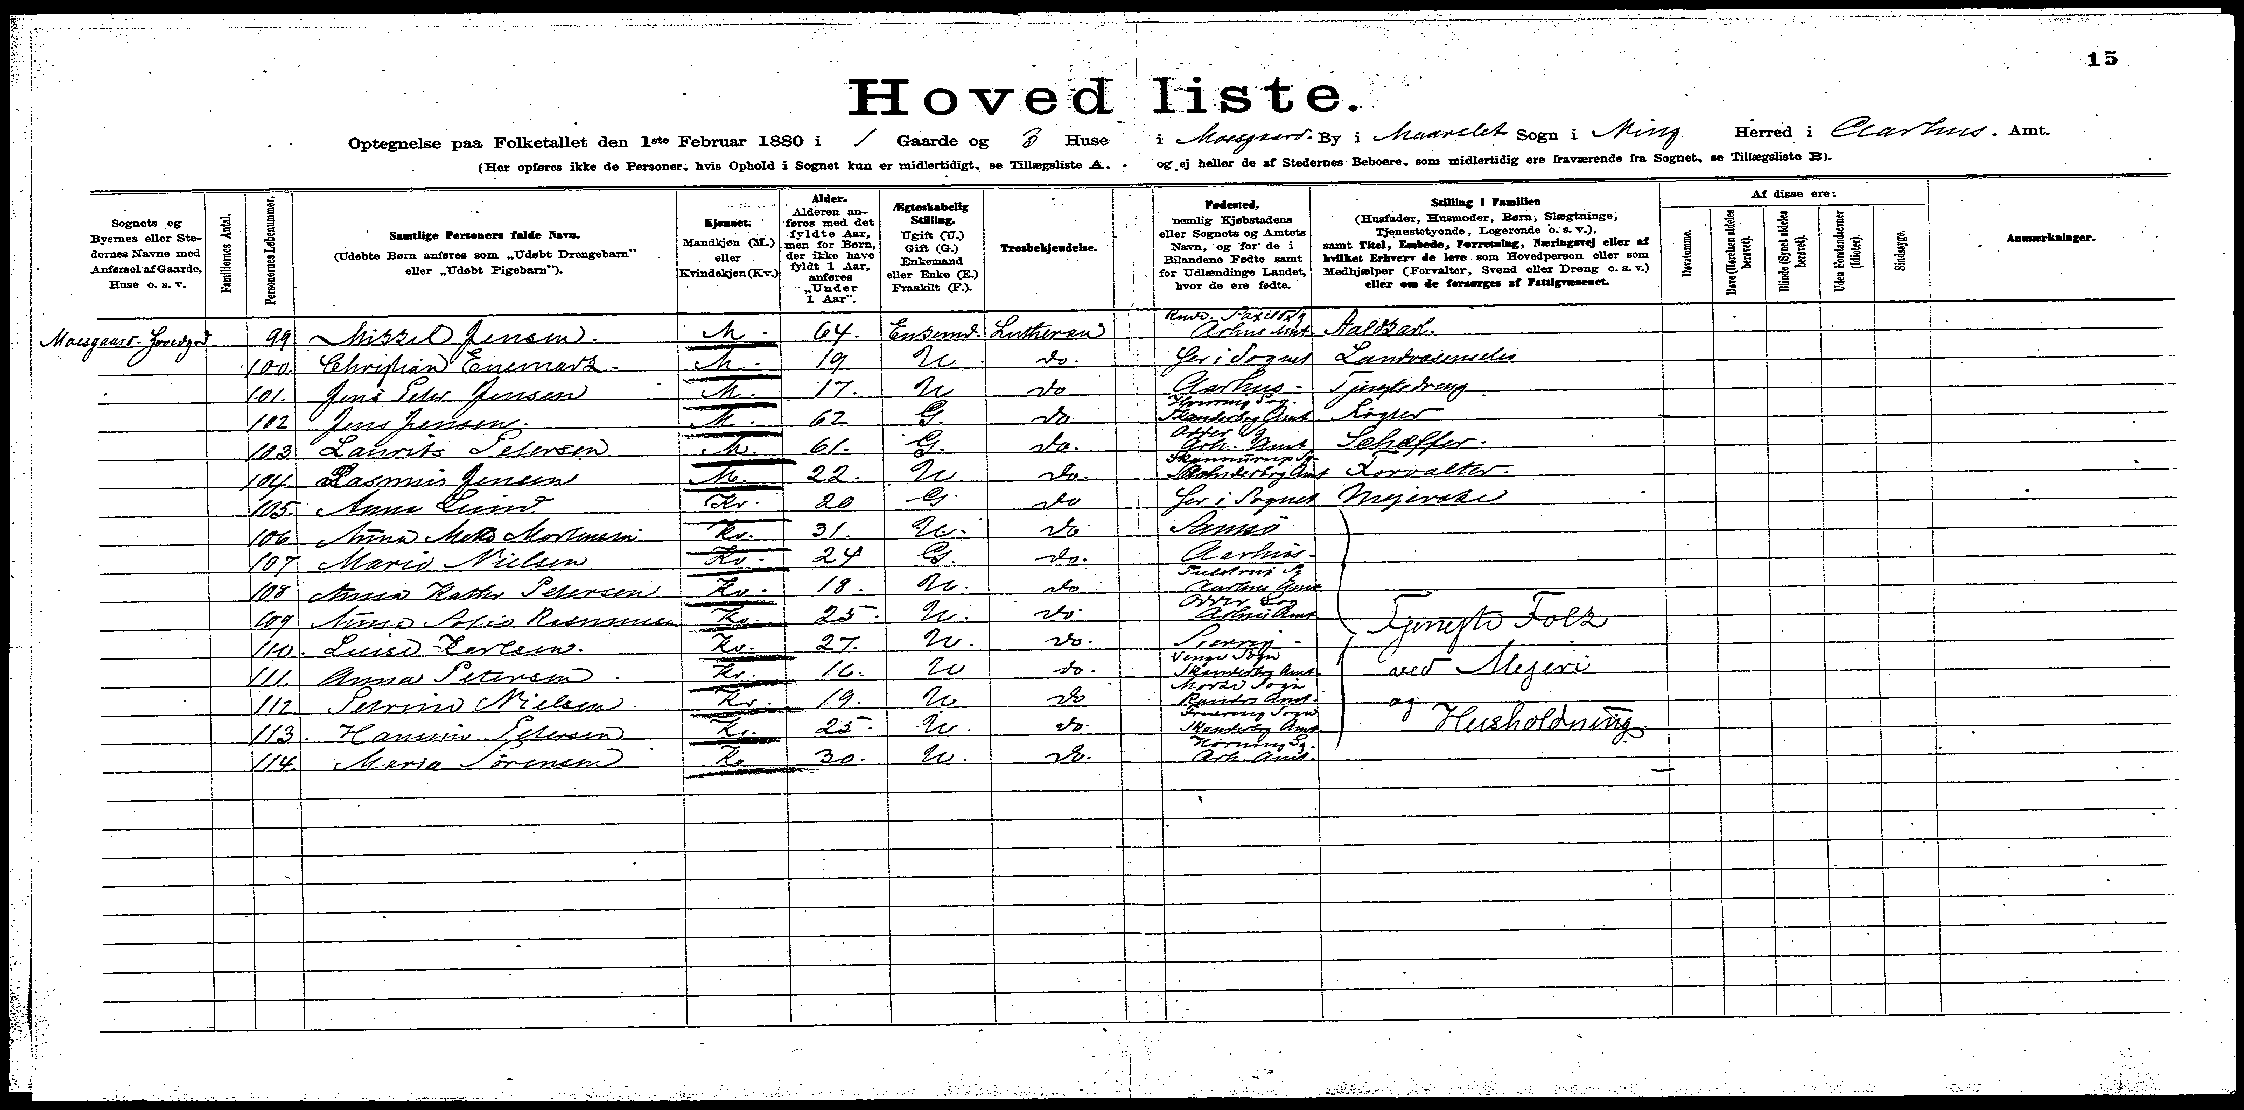 15
Hoved liste.
Optegnelse paa Folketallet den 1ste Februar 1880 i 1 Gaarde og 3 Huse i Moesgaard By i Maarslet Sogn i Ning Herred i Aarhus Amt.
(Her opføres ikke de Personer, hvis Ophold i Sognet kun er midlertidigt, se Tillægsliste A. og ej heller de af Stedernes Beboere, som midlertidig ere fraværende fra Sognet, se Tillægsliste B).
Sognets og Byernes eller Stedernes Navne med Anførsel af Gaarde, Huse o. s. v.
Familiernes Antal.
Personernes Løbenummer.
Samtlige Personers fulde Navn.
(Udøbte Børn anføres som „Udøbt Drengebarn" eller „Udøbt Pigebarn").
Kjønnet.
Mandkjøn (M.) eller Kvindekjøn (Kv.)
Alder.
Alderen anføres med det fyldte Aar, men for Børn, der ikke have fyldt 1 Aar, anføres „Under 1 Aar".
Ægteskabelig Stilling.
Ugift (U.) Gift (G.) Enkemand eller Enke (E.) Fraskilt (F.).
Trosbekjendelse.
Fødested,
nemlig Kjøbstadens eller Sognets og Amtets Navn, og for de i Bilandene Fødte samt for Udlændinge Landet, hvor de ere fødte.
Stilling i Familien
(Husfader, Husmoder, Børn, Slægtninge, Tjenestetyende, Logerende o. s. v.), samt Titel, Embede, Forretning, Næringsvej eller af hvilket Erhverv de leve som Hovedperson eller som Medhjælper (Forvalter, Svend eller Dreng o. s. v.) eller om de forsørges af Fattigvæsenet.
Af disse ere:
Døvstumme.
Døve (Hørelsen aldeles berøvet).
Blinde (Synet aldeles berøvet).
Uden Forstandsevner (Idioter).
Sindssyge.
Anmærkninger.
Moesgaard Hovedgrd 99 Mikkel Jensen. M. 64. Enkemd. Lutheran Arhus Amt Aalekarl.
100. Christian Enemark M. 19 U. do. Her i Sognet Landvæsenselev
101. Jens Peter Jensen M. 17. U do Aarhus Tjenestedreng
102 Jens Jensen M. 62 G. do Skanderborg Amt Røgter
103. Laurits Petersen M. 61. G. do. Odder Arh. Amt Schæffer.
104. Rasmus Jensen M. 22. U do. Skanderborg Amt Forvalter.
105. Anna Lund Kv. 20 G do Her i Sognet Mejerske
106. Anna Mette Mortensen Kv. 31. U. do Samsø
107 Marie Nielsen Kv. 24 G. do. Aarhus
108 Anna Kathr. Petersen Kv. 18. U. do Aarhus Amt
109 Anna Sofie Rasmussen Kv. 25. U. do. Odder Sogn Arhus Amt
Tjeneste Folk
110. Luise Karlsen. Kv. 27. U. do.
111. Anna Petersen Kv. 16. U do. Venge Sogn Skanderborg Amt
ved Mejeri
112. Petrine Nielsen Kv. 19. U do Mørke Sogn Randers Amt
og
113. Hansine Petersen Kv. 25. U. do. Skanderborg Amt
Husholdning.
114. Maria Sørensen Kv 30. U. do. Hørning Sg. Arh Amt.